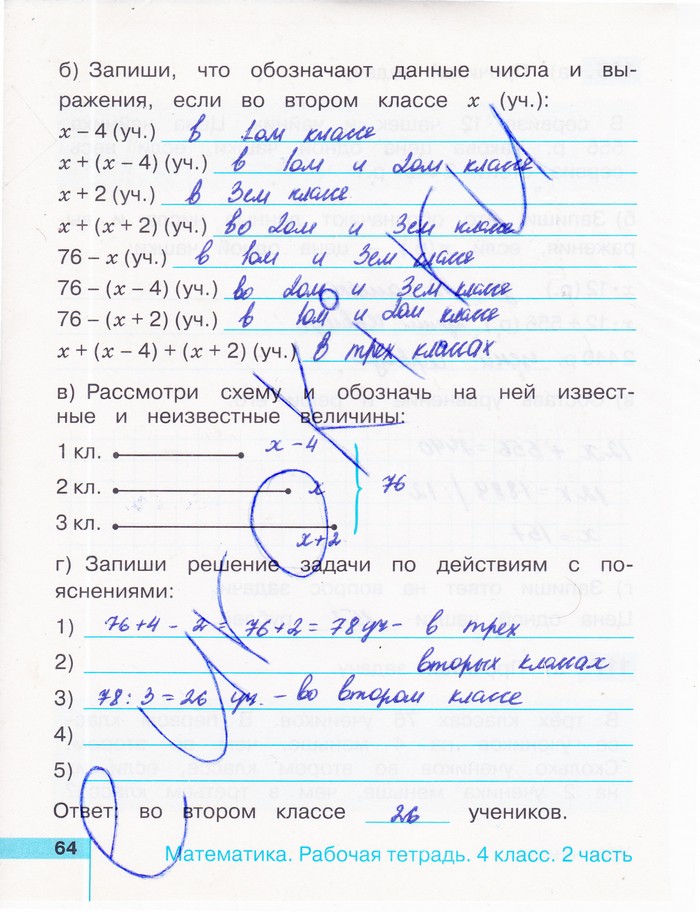 б) Запиши, что обозначают данные числа и вы-
ражения, если во втором классе x (уч.):
x – 4 (уч.) в 1ом классе
x + (x – 4) (уч.) в 1ом и 2ом классе
x + 2 (уч.) в 3ем классе
x + (x + 2) (уч.) во 2ом и 3ем классе
76 – x (уч.) в 1ом и 3ем классе
76 – (x – 4) (уч.) во 2ом и 3ем классе
76 – (x + 2) (уч.) в 1ом и 2ом классе
x + (x – 4) + (x + 2) (уч.) в трех классах
в) Рассмотри схему и обозначь на ней извест-
ные и неизвестные величины:
1 кл. x – 4
2 кл. x 76
3 кл. x+2
г) Запиши решение задачи по действиям с по-
яснениями:
1) 76+4 – 2 = 76+2 = 78 уч – в трех
2) вторых классах
3) 78 : 3 = 26 уч. – во втором классе
4)
5)
Ответ: во втором классе 26 учеников.
64 Математика. Рабочая тетрадь. 4 класс. 2 часть